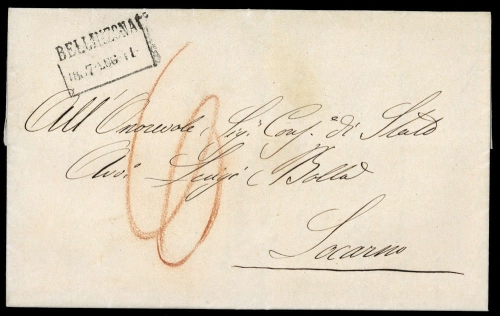 BELLINZONA
1857 AUG 11
6
All' Onorevole Sig.r Cons.e di Stato
Avv. Luigi Bolla
Locarno